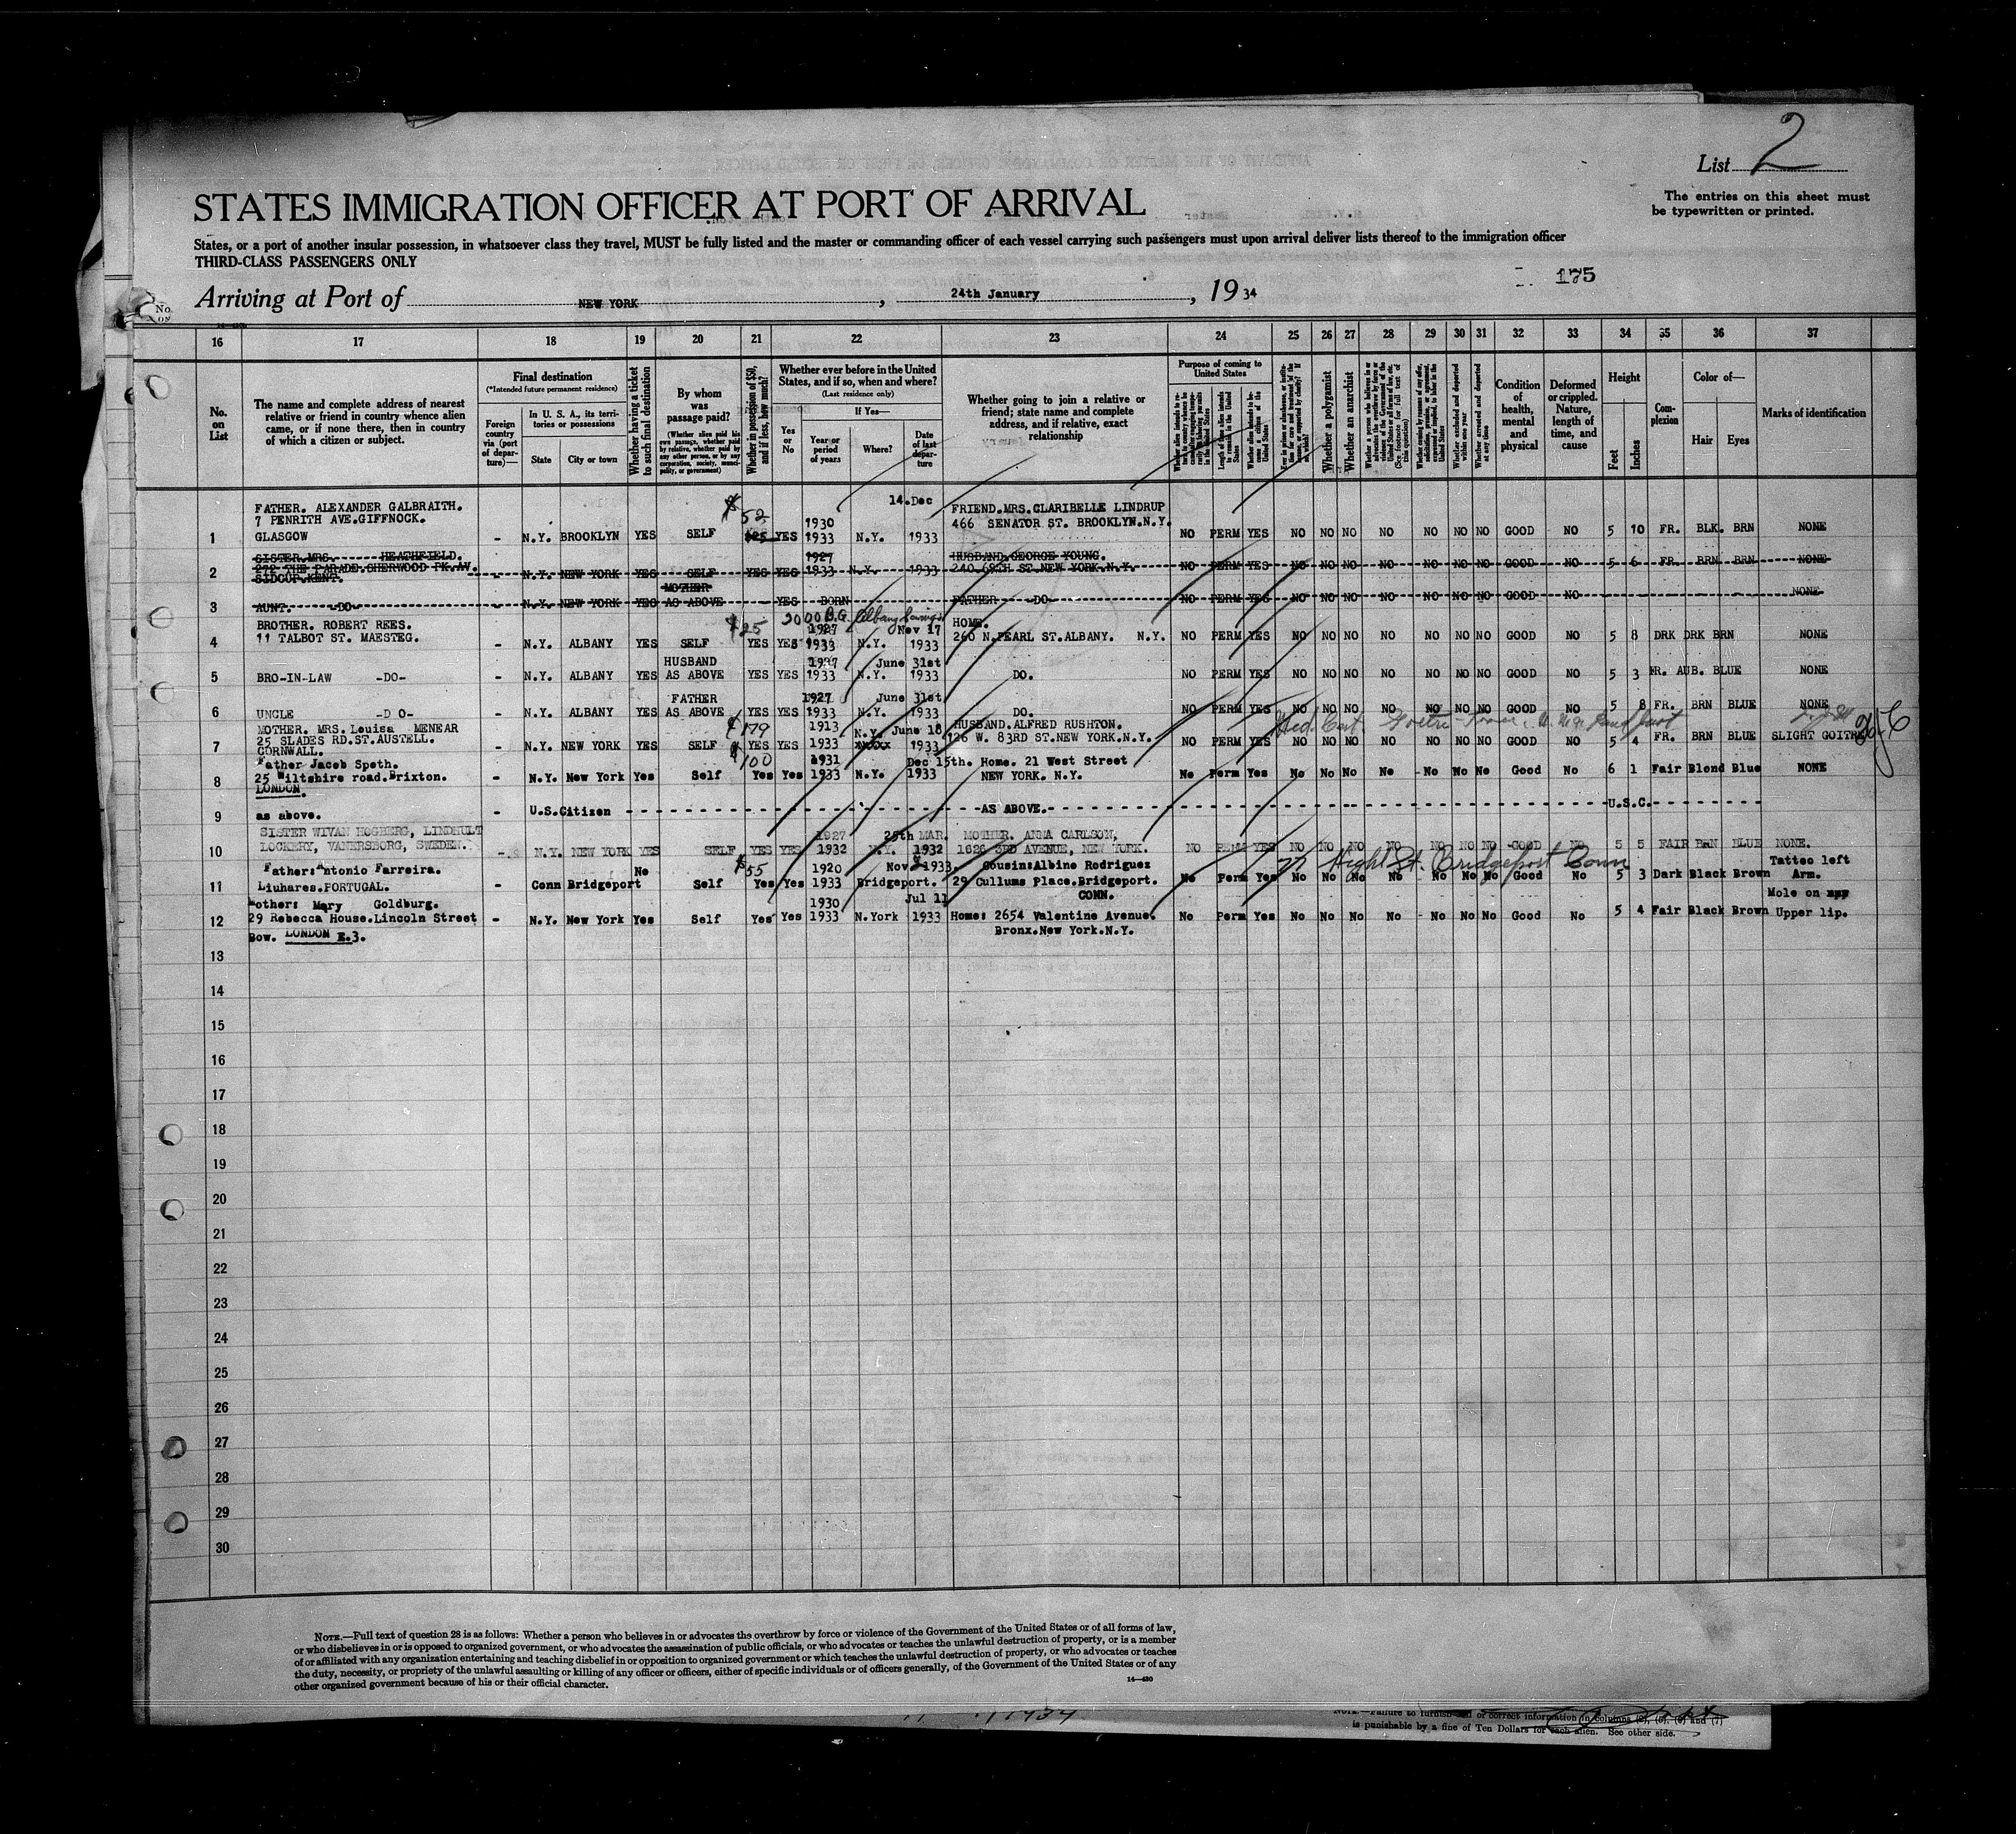 List 2
The entries on this sheet must
be typewritten or printed.
STATES IMMIGRATION OFFICER AT PORT OF ARRIVAL
States, or a port of another insular possession, in whatsoever class they travel, MUST be fully listed and the master or commanding officer of each vessel carrying such passengers must upon arrival deliver lists thereof to the immigration officer
THIRD-CLASS PASSENGERS ONLY
175
Arriving at Port of NEW YORK, 24th January, 19 34
16 17 18 19 20 21 22 23 24 25 26 27 28 29 30 31 32 33 34 35 36 37
No. on List
The name and complete address of nearest
relative or friend in country whence alien
came, or if none there, then in country
of which a citizen or subject.
Final destination
(*Intended future permanent residence)
Foreign country via (port of departure)—
In U. S. A., its territories or possessions
State
City or town
Whether having a ticket to such final destination
By whom was passage paid?
(Whether alien paid his own passage, whether paid by relative, whether paid by any other person, or by any corporation, society, municipality, or government)
Whether in possession of $50, and if less, how much?
Whether ever before in the United
States, and if so, when and where?
(Last residence only)
Yes or No
If Yes—
Year or period of years
Where?
Date of last departure
Whether going to join a relative or
friend; state name and complete
address, and if relative, exact
relationship
Purpose of coming to United States
Whether a polygamist
Whether an anarchist
Condition of health, mental and physical
Deformed or crippled. Nature, length of time, and cause
Height
Feet
Inches
Complexion
Color of—
Hair
Eyes
Marks of identification
FATHER. ALEXANDER GALBRAITH. 14.Dec FRIEND.MRS.CLARIBELLE LINDRUP
7 PENRITH AVE.GIFFNOCK. $52 1930 466 SENATOR ST. BROOKLYN.N.Y.
1 GLASGOW - N.Y. BROOKLYN YES SELF $25 YES 1933 N.Y. 1933 NO PERM YES NO NO NO NO NO NO NO GOOD NO 5 10 FR. BLK. BRN NONE
SISTER.MRS. HEATHFIELD. 1927 HUSBAND.GEORGE YOUNG.
2 272 THE PARADE.SHERWOOD PK.AV. - N.Y. NEW YORK YES SELF YES YES 1933 N.Y. 1933 240.69TH ST.NEW YORK.N.Y. NO PERM YES NO NO NO NO NO NO NO GOOD NO 5 6 FR. BRN BRN NONE
SIDCUP.KENT.
MOTHER
3 AUNT. -DO- - N.Y. NEW YORK YES AS ABOVE - YES BORN FATHER -DO- NO PERM YES NO NO NO NO NO NO NO GOOD NO NONE
BROTHER. ROBERT REES. $25 3000 Albany Savings 1927 Nov 17 HOME.
4 11 TALBOT ST. MAESTEG. - N.Y. ALBANY YES SELF YES YES 1933 N.Y. 1933 260 N.PEARL ST.ALBANY. N.Y. NO PERM YES NO NO NO NO NO NO NO GOOD NO 5 8 DRK DRK BRN NONE
HUSBAND 1927 June 31st
5 BRO-IN-LAW -DO- - N.Y. ALBANY YES AS ABOVE YES YES 1933 N.Y. 1933 DO. NO PERM YES NO NO NO NO NO NO NO GOOD NO 5 3 FR. AUB. BLUE NONE
FATHER 1927 June 31st
6 UNCLE -D O- - N.Y. ALBANY YES AS ABOVE YES YES 1933 N.Y. 1933 DO. NO PERM YES NO NO NO NO NO NO NO GOOD NO 5 8 FR. BRN BLUE NONE
MOTHER. MRS.Louisa MENEAR $179 1913 June 18 HUSBAND.ALFRED RUSHTON. Med. Cert.
7 25 SLADES RD.ST.AUSTELL. - N.Y. NEW YORK YES SELF YES YES 1933 N.Y. xxxxx 1933 126 W. 83RD ST.NEW YORK.N.Y. NO PERM YES NO NO NO NO NO NO NO GOOD NO 5 4 FR. BRN BLUE SLIGHT GOITRE
CORNWALL.
Father Jacob Speth. $100 1931 Dec 15th. Home. 21 West Street
8 25 Wiltshire road.Brixton. - N.Y. New York Yes Self Yes Yes 1933 N.Y. 1933 NEW YORK. N.Y. No Perm Yes No No No No No No No Good No 6 1 Fair Blond Blue NONE
LONDON.
9 as above. - U.S.Citizen - - - AS ABOVE. - - - U.S.C. - - -
SISTER WIVAN HOGBERG, LINDHULT 1927 25th MAR. MOTHER. ANNA CARLSON,
10 LOCKERY, VANERSBORG, SWEDEN. - N.Y. NEW YORK YES SELF YES YES 1932 N.Y. 1932 1626 3RD AVENUE, NEW YORK. NO PERM YES NO NO NO NO NO NO NO GOOD NO 5 5 FAIR BRN BLUE NONE.
77 Hight St. Bridgeport Conn
Father:Antonio Farreira. No $55 1920 Nov 1933 Cousin:Albine Rodriguez Tattoo left
11 Liuhares.PORTUGAL. - Conn Bridgeport Self Yes Yes 1933 Bridgeport. 29 Cullums Place.Bridgeport. No Perm Yes No No No No No No No Good No 5 3 Dark Black Brown Arm.
CONN.
Mother: Mary Goldburg. 1930 Jul 11 Mole on
12 29 Rebecca House.Lincoln Street - N.Y. New York Yes Self Yes Yes 1933 N.York 1933 Home: 2654 Valentine Avenue. No Perm Yes No No No No No No No Good No 5 4 Fair Black Brown Upper lip.
Bow. LONDON E.3. Bronx.New York.N.Y.
13
14
15
16
17
18
19
20
21
22
23
24
25
26
27
28
29
30
NOTE.—Full text of question 28 is as follows: Whether a person who believes in or advocates the overthrow by force or violence of the Government of the United States or of all forms of law,
or who disbelieves in or is opposed to organized government, or who advocates the assassination of public officials, or who advocates or teaches the unlawful destruction of property, or is a member
of or affiliated with any organization entertaining and teaching disbelief in or opposition to organized government or which teaches the unlawful destruction of property, or who advocates or teaches
the duty, necessity, or propriety of the unlawful assaulting or killing of any officer or officers, either of specific individuals or of officers generally, of the Government of the United States or of any
other organized government because of his or their official character.
14—430
NOTE.—Failure to furnish or correct information in columns (2), (5), (6) and (7)
is punishable by a fine of Ten Dollars for each alien. See other side.